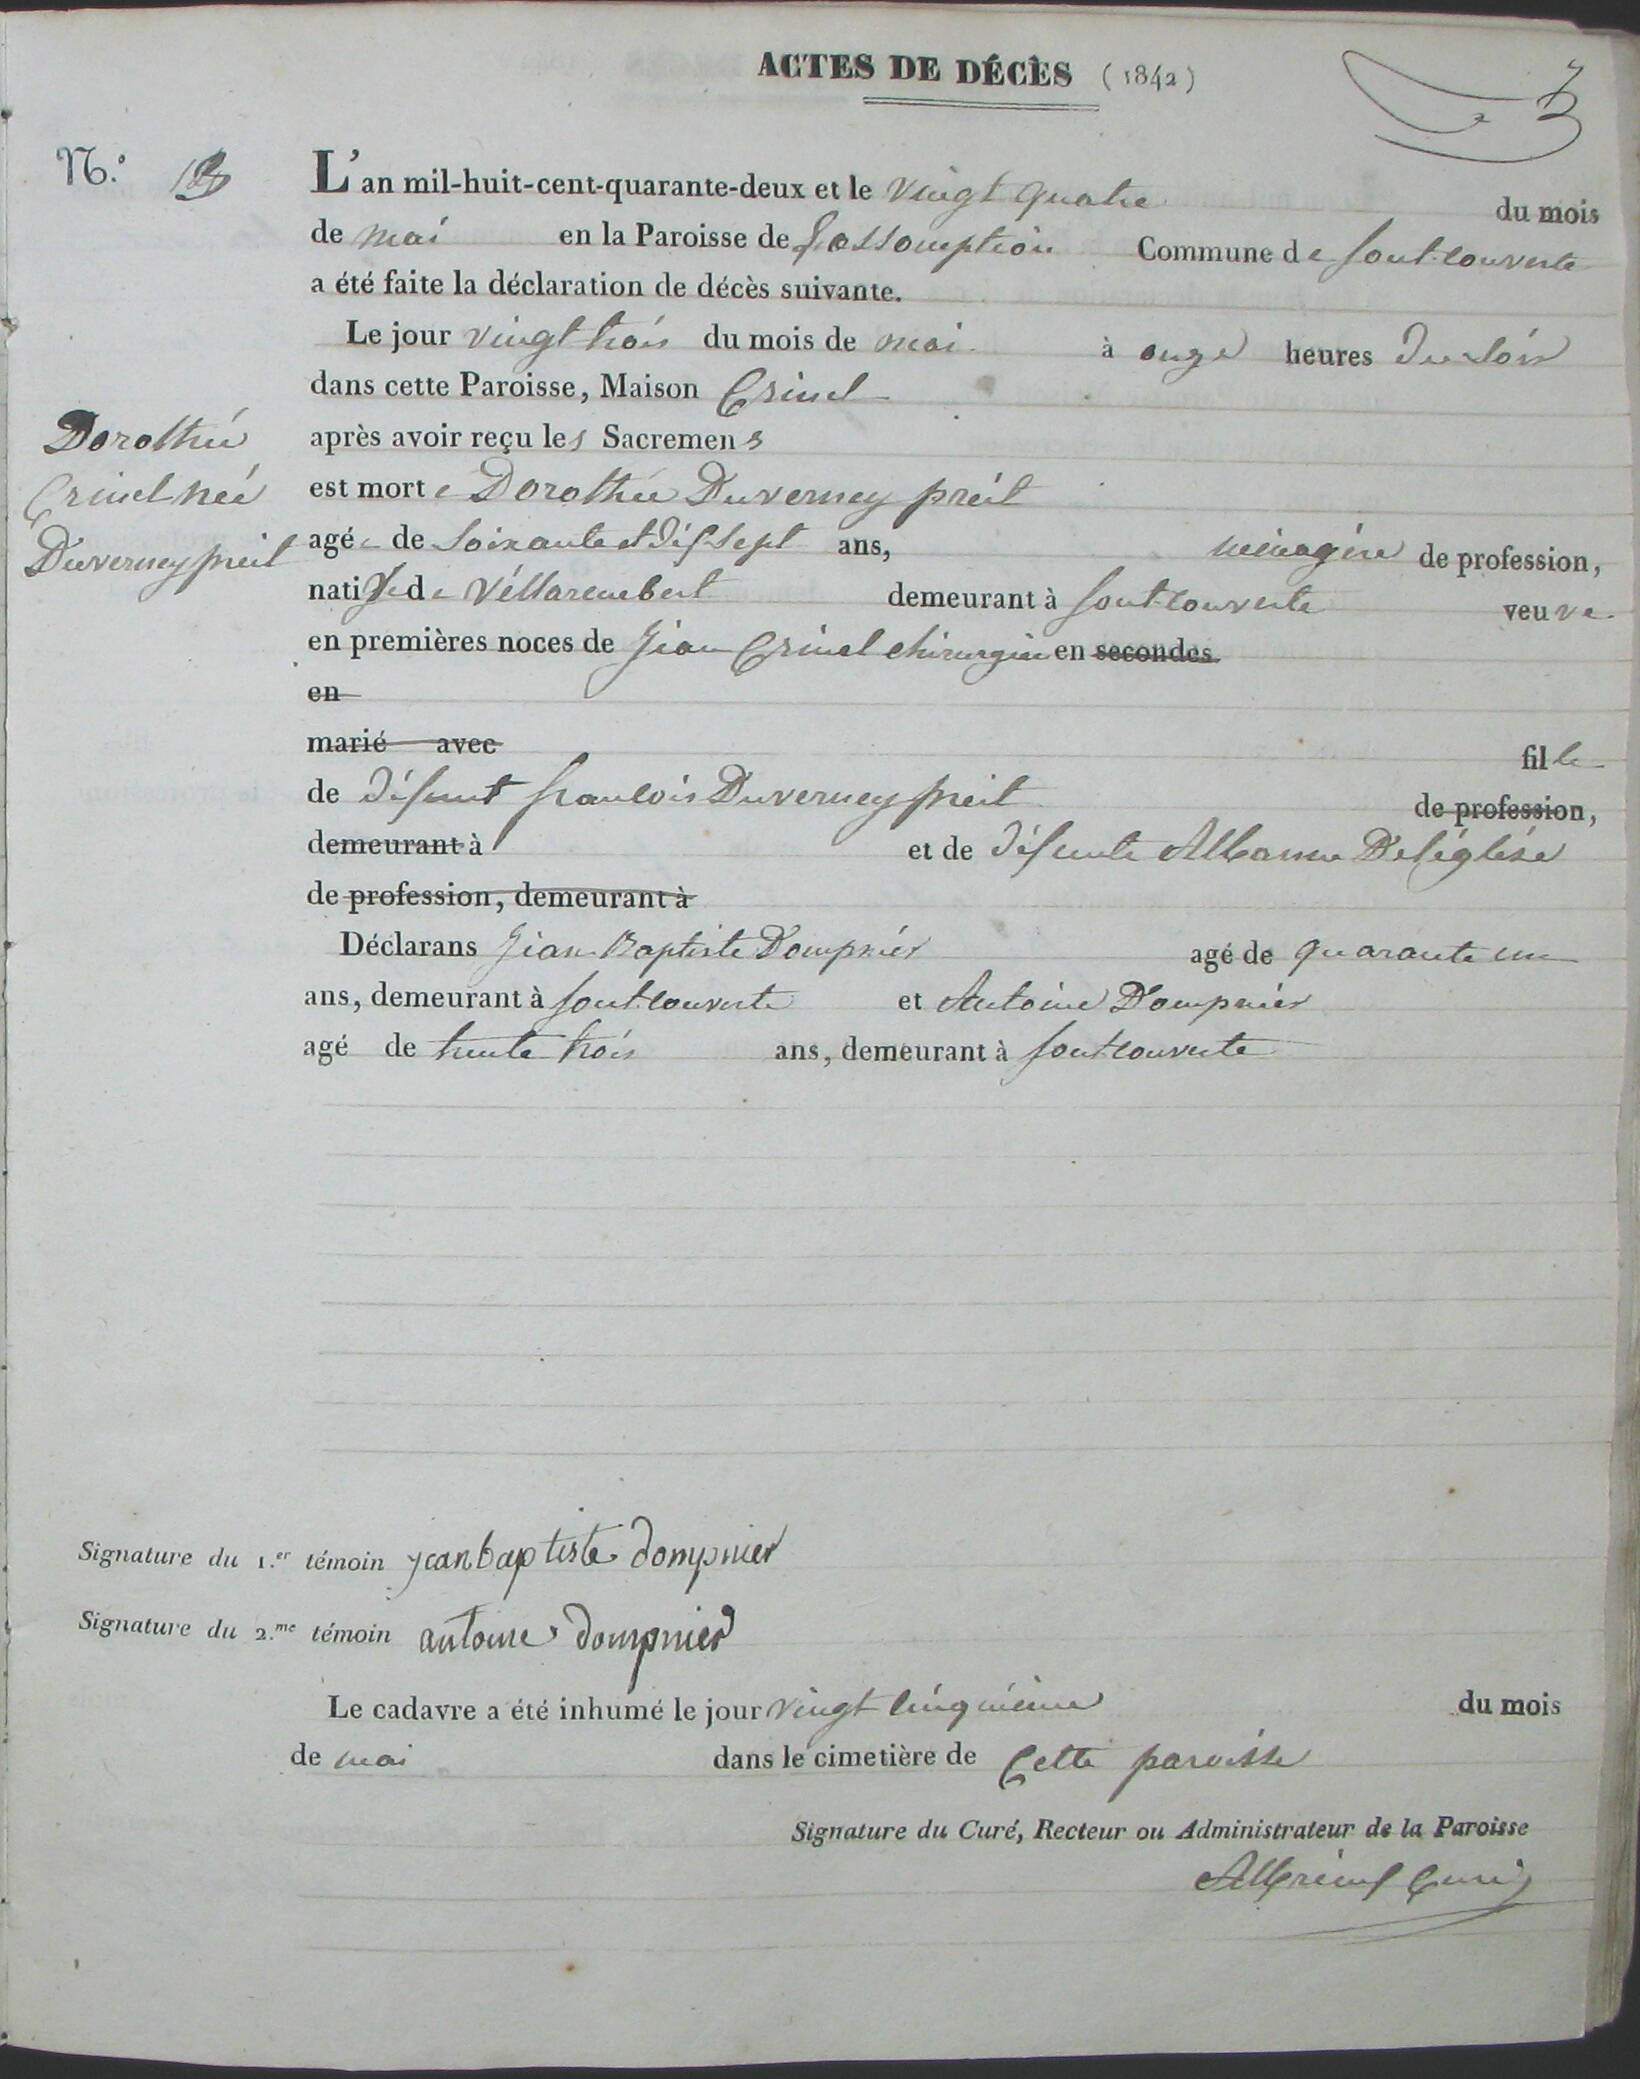 ACTES DE DÉCÈS (1842)
N.°
L'an mil-huit-cent-quarante-deux et le vingt quatre du mois
de mai en la Paroisse de l'assomption Commune de fontcouverte
a été faite la déclaration de décès suivante.
Le jour vingt trois du mois de mai à onze heures du soir
dans cette Paroisse, Maison Crinel
après avoir reçu les Sacremens
Dorothée
Crinel née
Duverney preit
est morte Dorothée Duverney preit
agée de soixante et dix sept ans, ménagère de profession,
native de Villarembert demeurant à fontcouverte veuve
en premières noces de Jean Crinel chirurgien en secondes
en
marié avec
fille
de défunt francois Duverney preit de profession,
demeurant à et de défunte Albanne Deléglise
de profession, demeurant à
Déclarans Jean Baptiste Dompnier agé de quarante un
ans, demeurant à fontcouverte et Antoine Dompnier
agé de trente trois ans, demeurant à fontcouverte
Signature du 1.er témoin jean baptiste dompnier
Signature du 2.me témoin antoine dompnier
Le cadavre a été inhumé le jour vingt cinquième du mois
de mai dans le cimetière de cette paroisse
Signature du Curé, Recteur ou Administrateur de la Paroisse
Curé